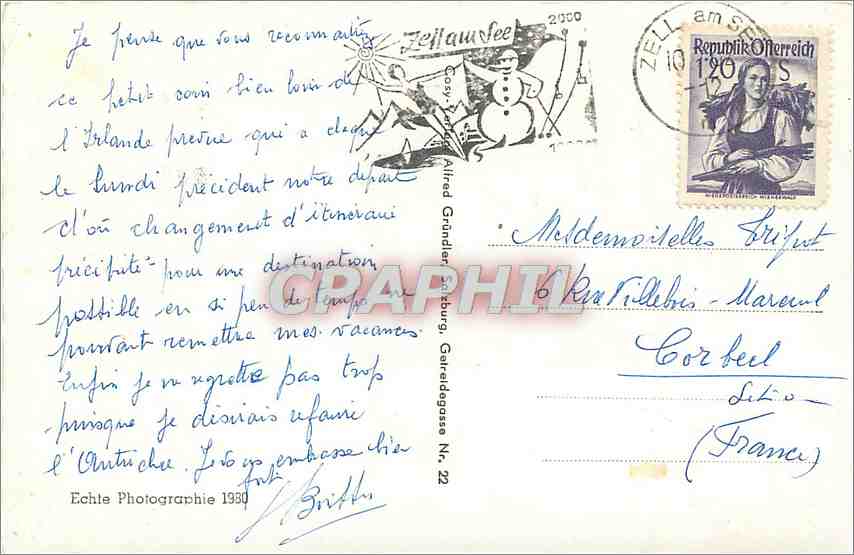 Je pense que vous reconnaitrez
ce petit coin bien loin de
l'Irlande prevue qui a claqué
le Lundi précédent notre départ
d'où changement d'itinéraire
précipité pour une destination
possible en si peu de temps ne
pouvant remettre mes vacances.
Enfin je ne regrette pas trop
puisque je désirais refaire
l'Autriche. Je vous embrasse bien
fort
Echte Photographie 1980
Zell am See
2000
Cosy-Verlag Alfred Gründler, Salzburg, Getreidegasse Nr. 22
ZELL am SEE
10
-12
Republik Österreich
1·20 S
NIEDERÖSTERREICH WIENERWALD
Mesdemoiselles
6 Rue Villebois-Mareuil
Corbeil
(France)
CPAPHIL